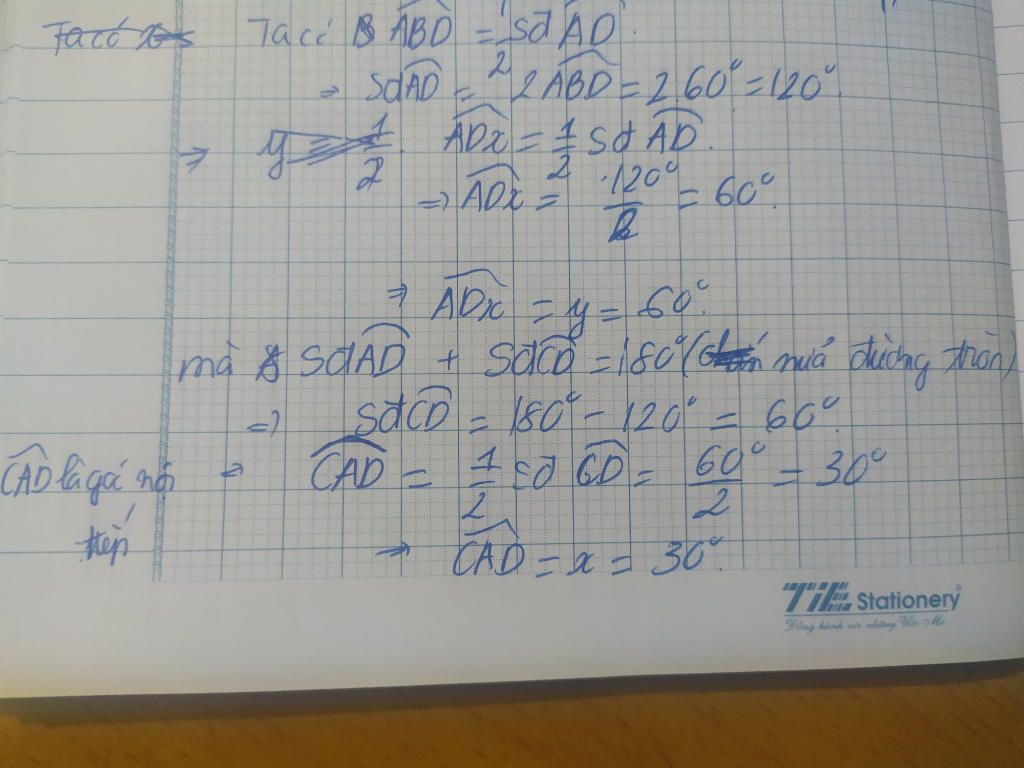 Ta có Ta có ABD = 1/2 sđ AD.
⇒ SđAD = 2ABD = 2 60° = 120°.
⇒ y = 1/2. ADx = 1/2 sđ AD.
⇒ ADx = 120°/2 = 60°.
⇒ ADx = y = 60°.
mà SđAD + SđCD = 180° ( nuả đường tròn)
⇒ SđCD = 180° - 120° = 60°.
CAD là gó nội ⇒ CAD = 1/2 sđ CD = 60°/2 = 30°
tiếp ⇒ CAD = x = 30°.
TiE Stationery
Đồng hành với những Ước Mơ